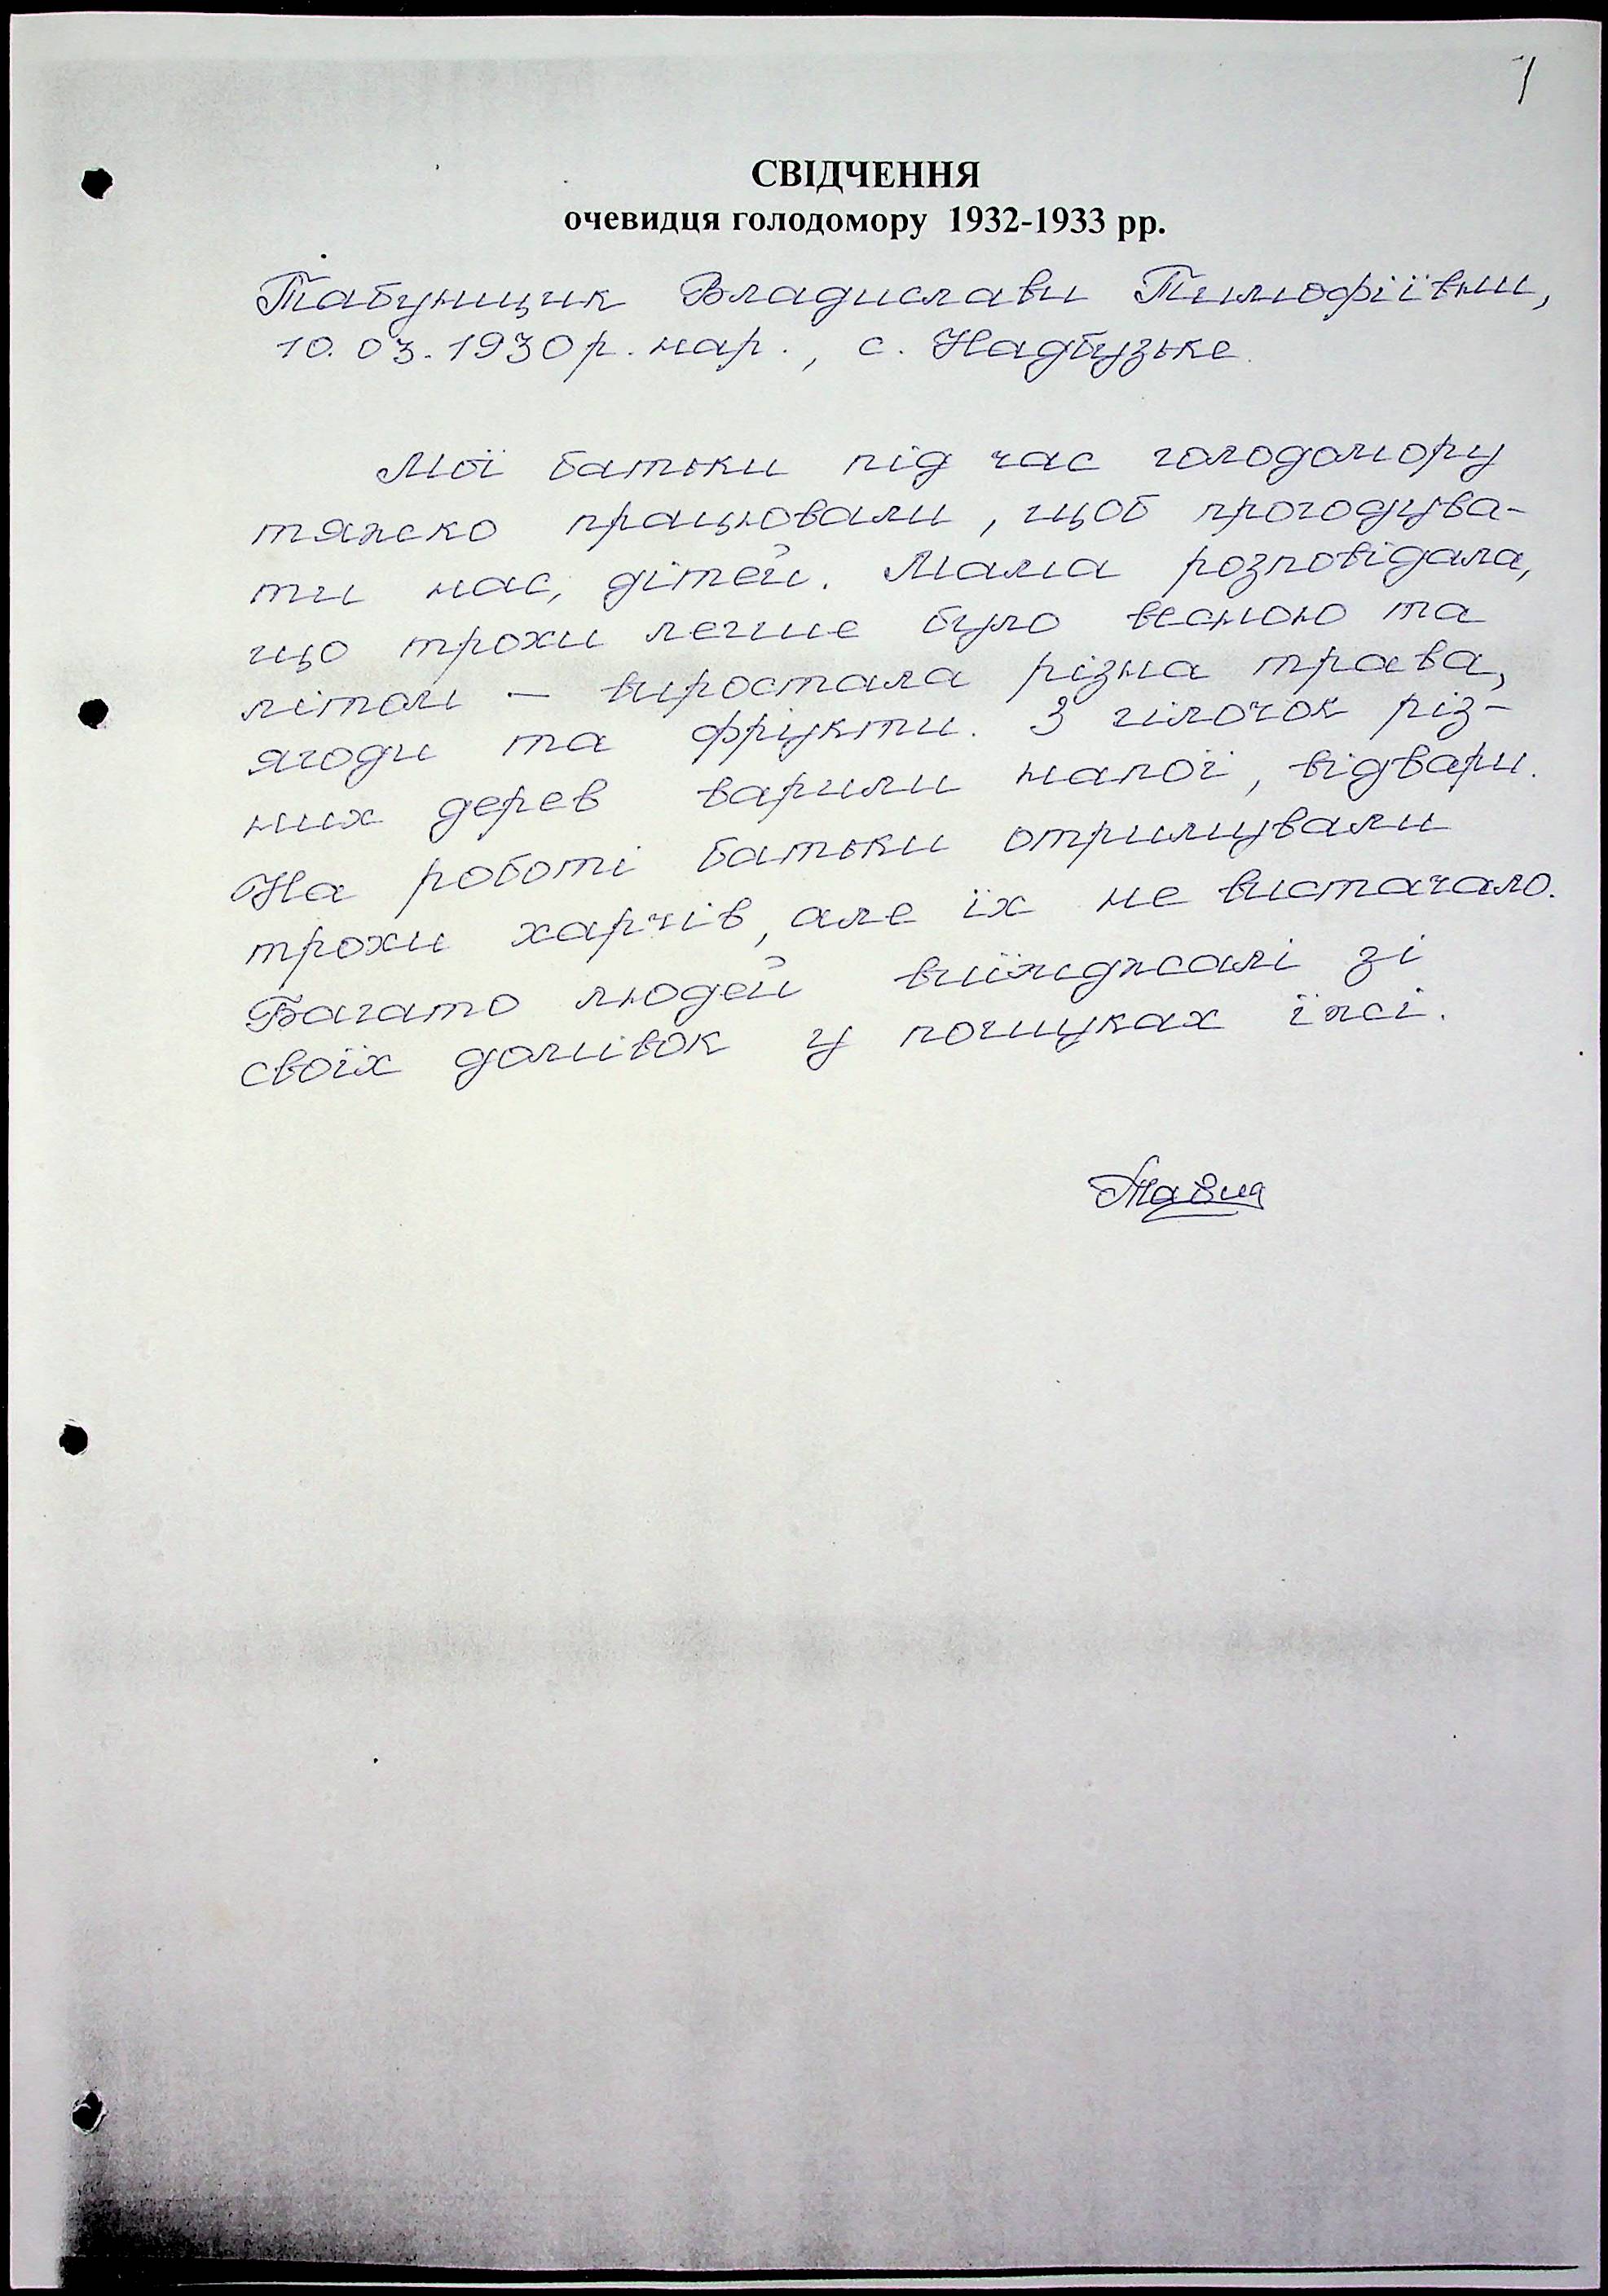 1
СВІДЧЕННЯ
очевидця голодомору 1932-1933 рр.
Табунщик Владислави Тимофіївни,
10.03.1930 р. нар., с. Надбузьке.
Мої батьки під час голодомору
тяжко працювали, щоб прогодува-
ти нас, дітей. Мама розповідала,
що трохи легше було весною та
літом - виростала різна трава,
ягоди та фрукти. З гілочок різ-
них дерев варили напої, відвари.
На роботі батьки отримували
трохи харчів, але їх не вистачало.
Багато людей виїжджалі зі
своїх домівок у пошуках їжі.